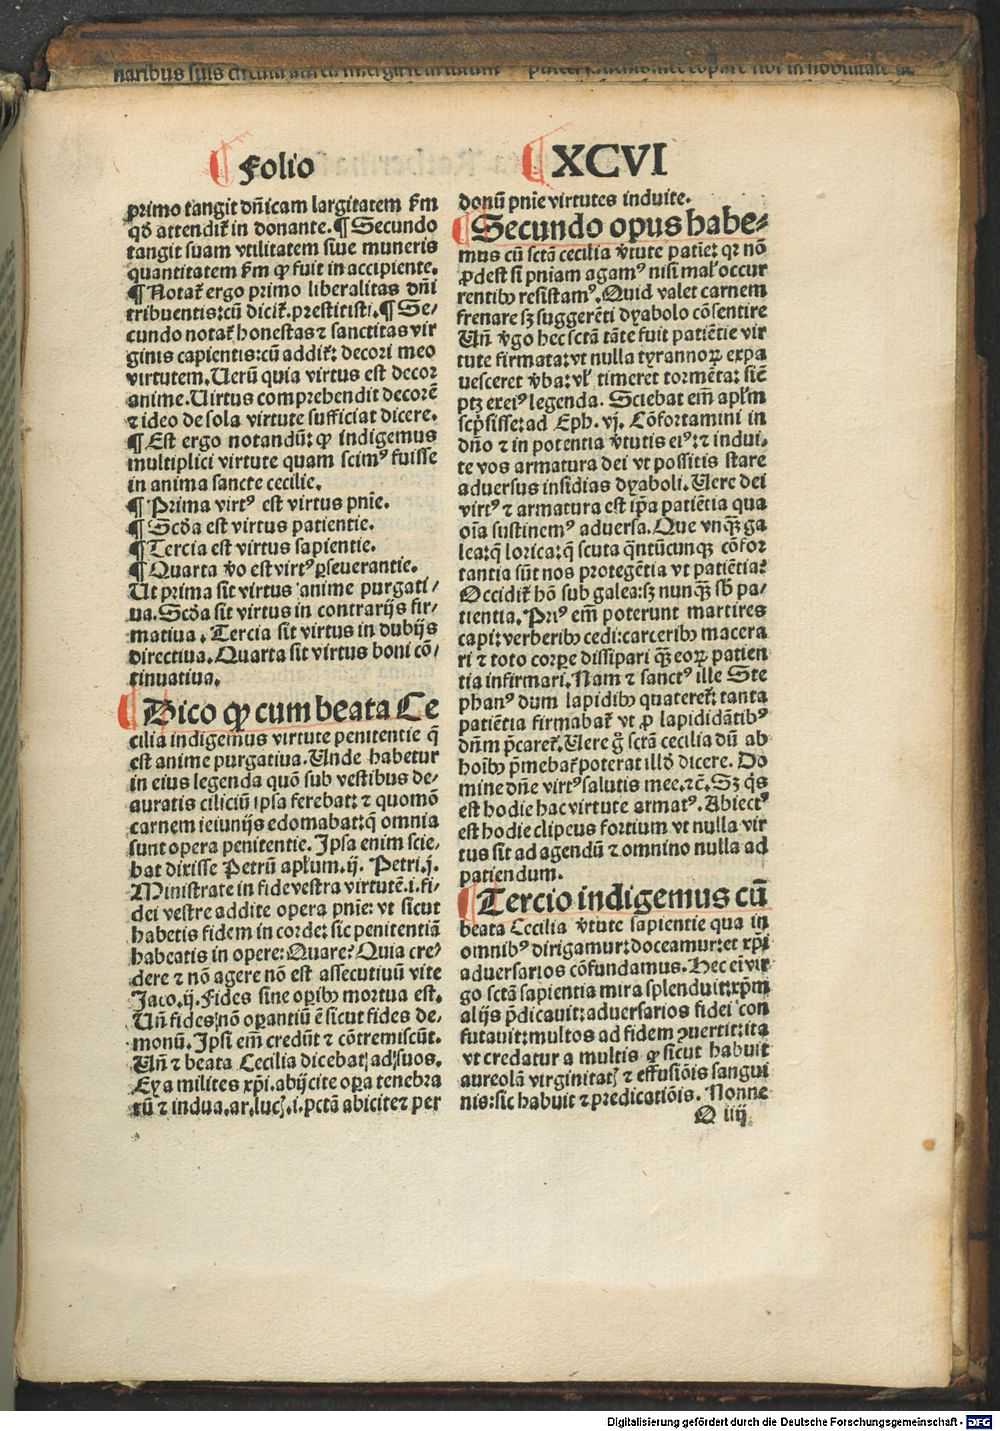 Folio
XCVI
primo tangit dn̄icam largitatem ẜm
qd̄ attendit᷑ in donante. ¶ Secundo
tangit suam vtilitatem siue muneris
quantitatem ẜm ꝙ fuit in accipiente.
¶ Notat᷑ ergo primo liberalitas dn̄i
tribuentis: cū dicit᷑. prestitisti. ¶ Se⸗
cundo notat᷑ honestas ⁊ sanctitas vir
ginis capientis: cū addit᷑: decori meo
virtutem. Uerū quia virtus est decor
anime. Uirtus comprehendit decorē
⁊ ideo de sola virtute sufficiat dicere.
¶ Est ergo notandū: ꝙ indigemus
multiplici virtute quam scimꝰ fuisse
in anima sancte cecilie.
¶ Prima virtꝰ est virtus pnīe.
¶ Scd̄a est virtus patientie.
¶ Tercia est virtus sapientie.
¶ Quarta v̄o est virtꝰ ꝑseuerantie.
Ut prima sit virtus anime purgati⸗
ua. Scd̄a sit virtus in contrarijs fir⸗
matiua. Tercia sit virtus in dubijs
directiua. Quarta sit virtus boni cō⸗
tinuatiua.
Dico ꝙ cum beata Ce
cilia indigemus virtute penitentie q̄
est anime purgatiua. Unde habetur
in eius legenda quō sub vestibus de⸗
auratis ciliciū ipsa ferebat: ⁊ quomō
carnem ieiunijs edomabat: q̄ omnia
sunt opera penitentie. Ipsa enim scie⸗
bat dixisse Petrū apl̄um. ij. Petri. j.
Ministrate in fide vestra virtutē. i. fi⸗
dei vestre addite opera pnīe: vt sicut
habetis fidem in corde: sic penitentiā
habeatis in opere: Quare? Quia cre⸗
dere ⁊ nō agere nō est assecutiuū vite
Jaco. ij. Fides sine oꝑibꝰ mortua est.
Un̄ fides nō oꝑantiū ē sicut fides de⸗
monū. Ipsi em̄ credūt ⁊ cōtremiscūt.
Un̄ ⁊ beata Cecilia dicebat ad suos.
Eya milites xp̄i. abijcite oꝑa tenebra
rū ⁊ indua. ar. luc̄. i. pctā abicite ⁊ per
donū pnīe virtutes induite.
Secundo opus habe⸗
mus cū sctā cecilia v̄tute patie: qꝛ nō
ꝓdest si pniam agamꝰ nisi mal̓ occur
rentibꝰ resistamꝰ. Quid valet carnem
frenare sꝫ suggerēti dyabolo cōsentire
Un̄ v̄go hec sctā tāte fuit patiētie vir
tute firmata: vt nulla tyrannoꝝ expa
uesceret v̄ba: vl̓ timeret tormēta: sic̄
ptꝫ ex eiꝰ legenda. Sciebat em̄ apl̄m
scp̄sisse: ad Eph. vj. Cōfortamini in
dn̄o ⁊ in potentia v̄tutis eiꝰ: ⁊ indui⸗
te vos armatura dei vt possitis stare
aduersus insidias dyaboli. Uere dei
virtꝰ ⁊ armatura est ip̄a patiētia qua
oīa sustinemꝰ aduersa. Que vnqꝫ̄ ga
lea: q̄ lorica: q̄ scuta q̄ntūcunqꝫ cōfor
tantia sūt nos protegētia vt patiētia?
Occidit᷑ hō sub galea: sꝫ nunqꝫ̄ sb̄ pa⸗
tientia. Priꝰ em̄ poterunt martires
capi: verberibꝰ cedi: carceribꝰ macera
ri ⁊ toto corꝑe dissipari qꝫ̄ eoꝝ patien
tia infirmari. Nam ⁊ sanctꝰ ille Ste
phanꝰ dum lapidibꝰ quateret᷑: tanta
patiētia firmabat᷑ vt ꝓ lapidātibꝰ
dn̄m p̄caret᷑. Uere g̊ sctā cecilia dū ab
hoībꝰ p̄mebat᷑ poterat illd̄ dicere. Do
mine dn̄e virtꝰ salutis mee. ⁊c̄. Sꝫ q̇s
est hodie hac virtute armatꝰ. Abiectꝰ
est hodie clipeus fortium vt nulla vir
tus sit ad agendū ⁊ omnino nulla ad
patiendum.
Tercio indigemus cū
beata Cecilia v̄tute sapientie qua in
omnibꝰ dirigamur: doceamur: et xp̄i
aduersarios cōfundamus. Hec em̄ vir
go sctā sapientia mira splenduit: xp̄m
alijs p̄dicauit: aduersarios fidei con
futauit: multos ad fidem ꝯuertit: ita
vt credatur a multis ꝙ sicut habuit
aureolā virginitatꝭ ⁊ effusiōis sangui
nis: sic habuit ⁊ predicatiōis. Nonne
O iiij
Digitalisierung gefördert durch die Deutsche Forschungsgemeinschaft - DFG